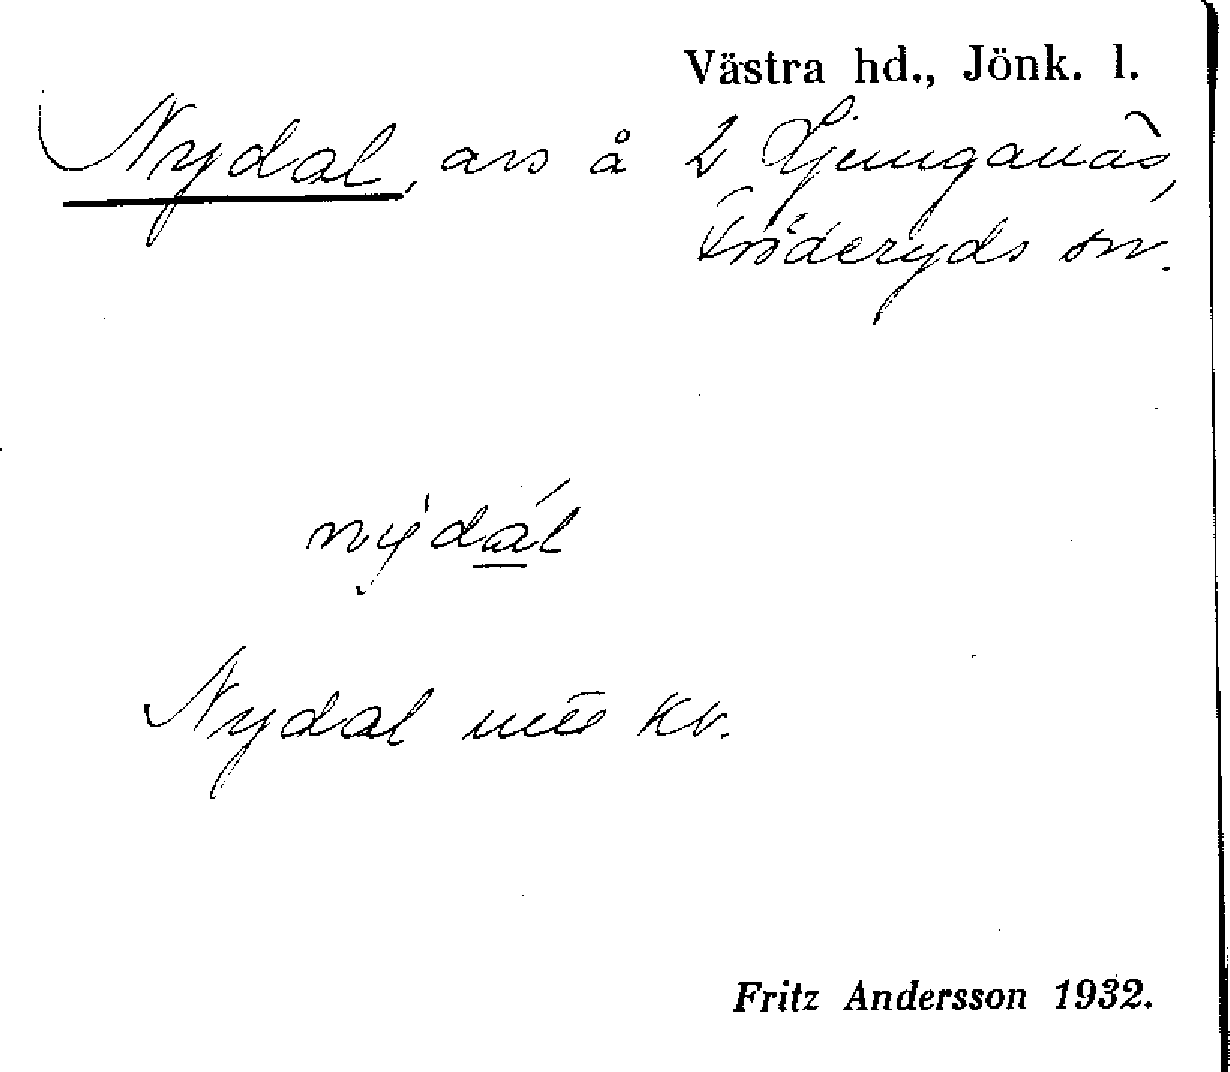 Västra hd., Jönk. l.
Nydal, avs å 2 Ljunganäs,
Fröderyds sn.
nýdál
Nydal kv.
Fritz Andersson 1932.